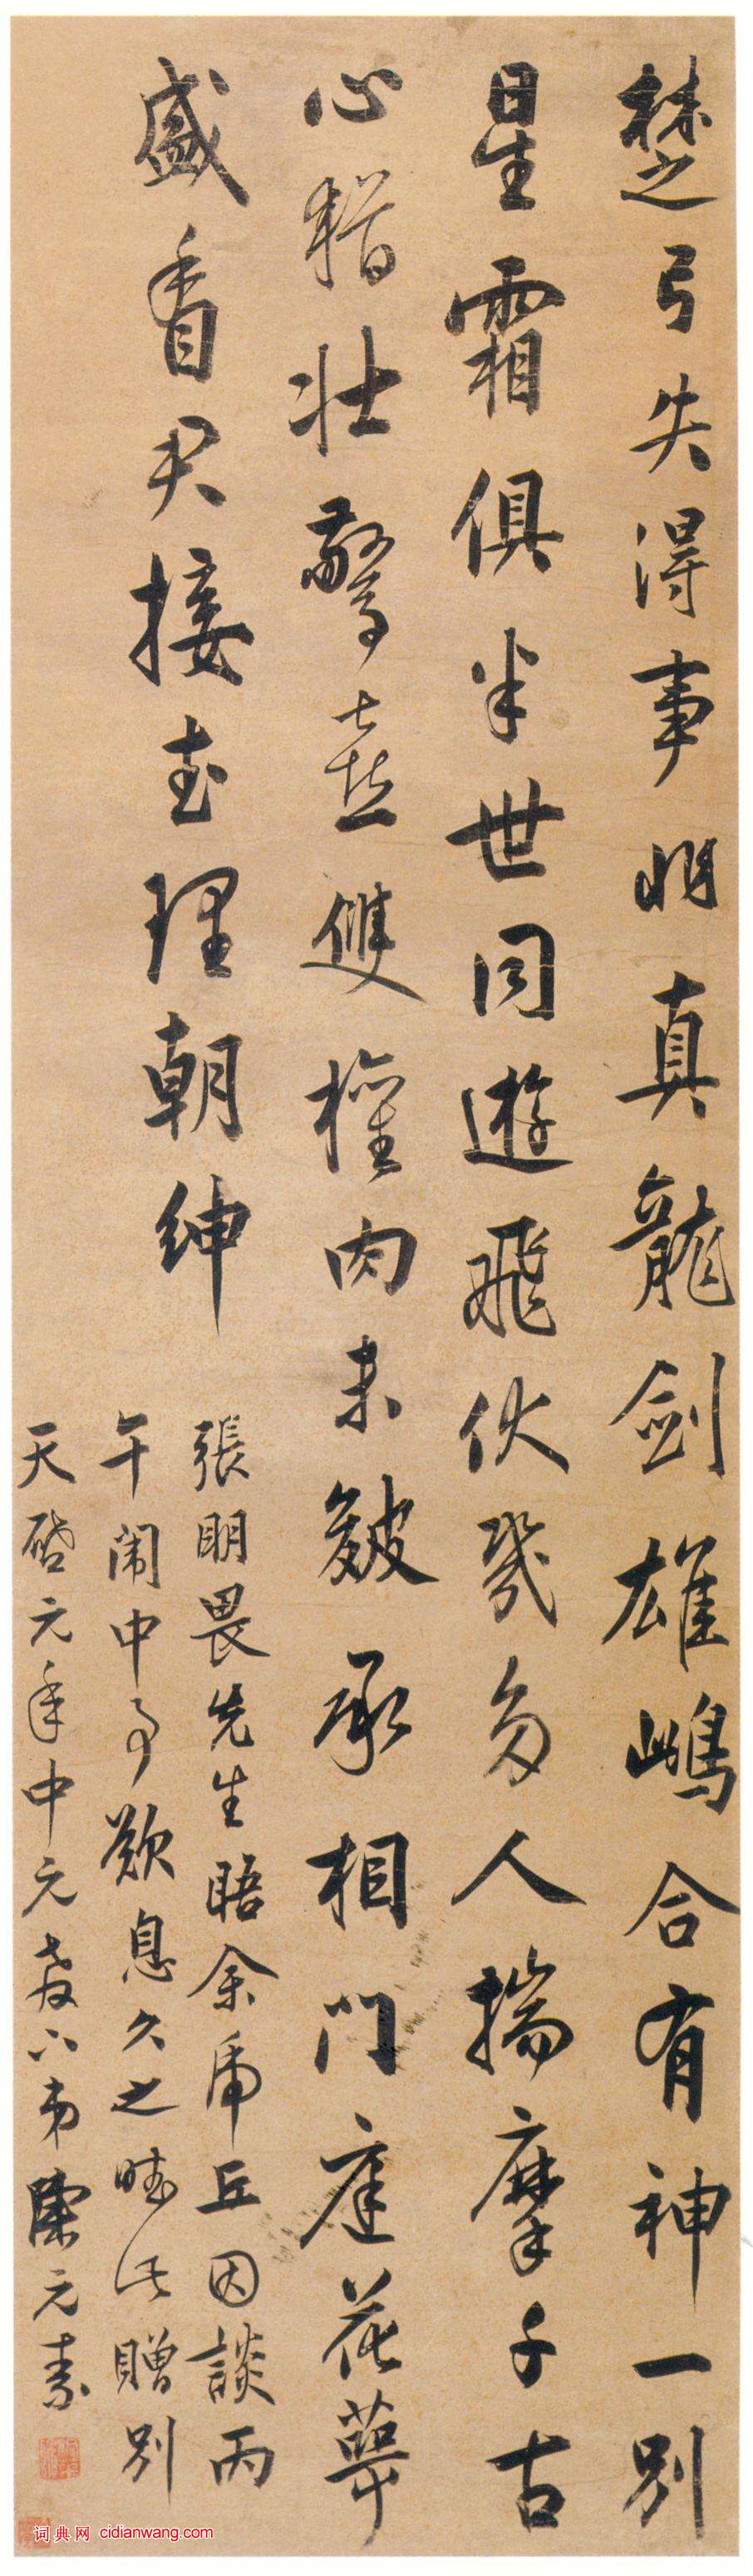 楚弓失得事非真龍劍雄鳴合有神一別
星霜俱半世同遊飛伏幾多人揣摩千古
心猶壯驚喜雙權肉未皴承相門庭花萼
盛看君接武理朝紳
張明畏先生晤余虎丘因談丙
午闱中事歎息久之賦此贈別
天啓元年中元後六日弟陳元素
词典网 cidianwang.com